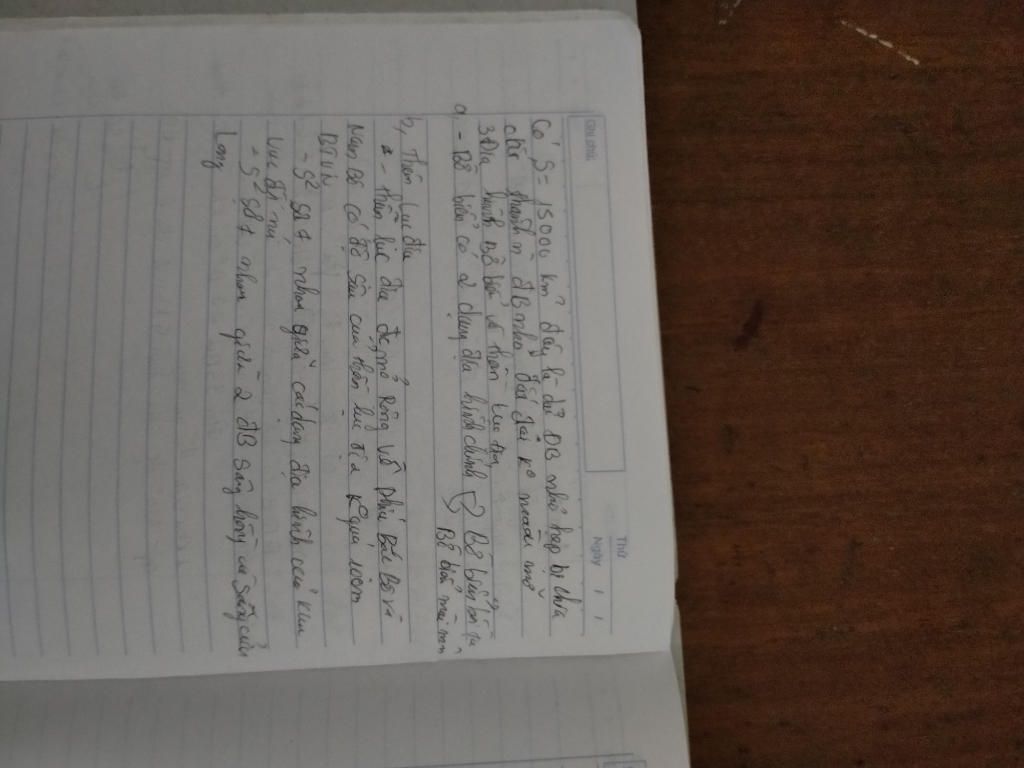 Chủ đề
Thứ
Ngày / /
Có S = 15000 km² đây là dải ĐB nhỏ hẹp bị chia
cắt thành n ĐB nhỏ đất đai kº màu mỡ
3 Địa hình bờ biển và thềm lục địa
a, - Bờ biển có 2 dạng địa hình chính Bờ biển bồi tụ
Bờ biển mài mòn
b, Thềm lục địa
- thềm lục địa mở Rộng về phía Bắc Bộ và
Nam Bộ có độ sâu của thềm lục địa kº quá 100m
- s² sđ≠ nhau giữa các dạng địa hình của khu
vực đồi núi
- s² sđ≠ nhau giữa 2 ĐB sông hồng và sông cửu
Long